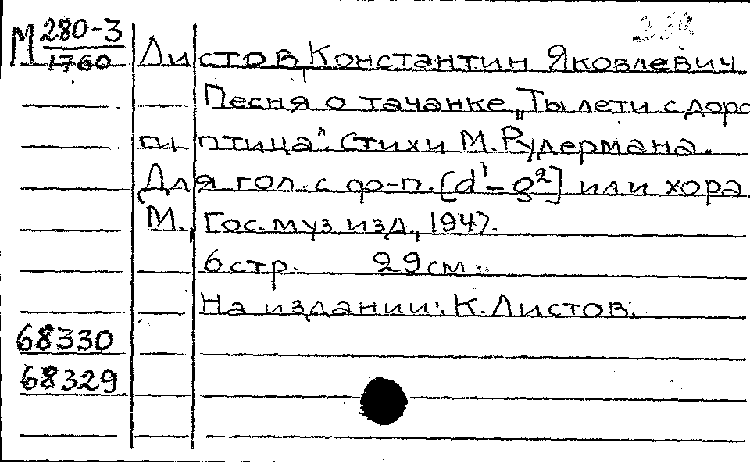 М 280-3
1760
Листов, Константин Яковлевич.
Песня о тачанке „Ты лети с доро
ги птица". Стихи М. Рудермана.
Для гол. с ф-п. [d¹-g²] или хора
М., Гос. муз. изд., 1947.
6 стр. 29 см.
На издании: К. Листов.
68330
68329